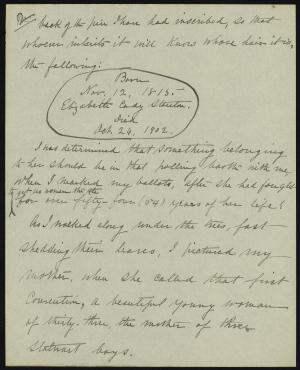 back of the pin I have had inscribed, so that
whoever inherits it will know whose hair it is,
the following:
Born
Nov. 12, 1815.
Elizabeth Cady Stanton.
Died
Oct. 26, 1902.
I was determined that something belonging
to her should be in that polling booth with me,
when I marked my ballots, after she had fought
to get us women the vote
for over fifty-four (54) years of her life!
As I walked along under the trees, fast
shedding their leaves, I pictured my
mother, when she called that first
Convention, a beautiful young woman
of thirty-three, the mother of three
stalwart boys.